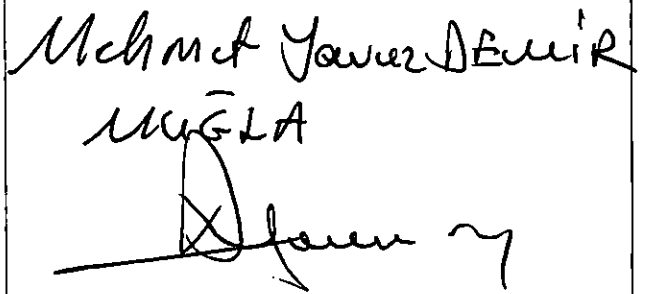 Mehmet Yavuz DEMİR
MUĞLA